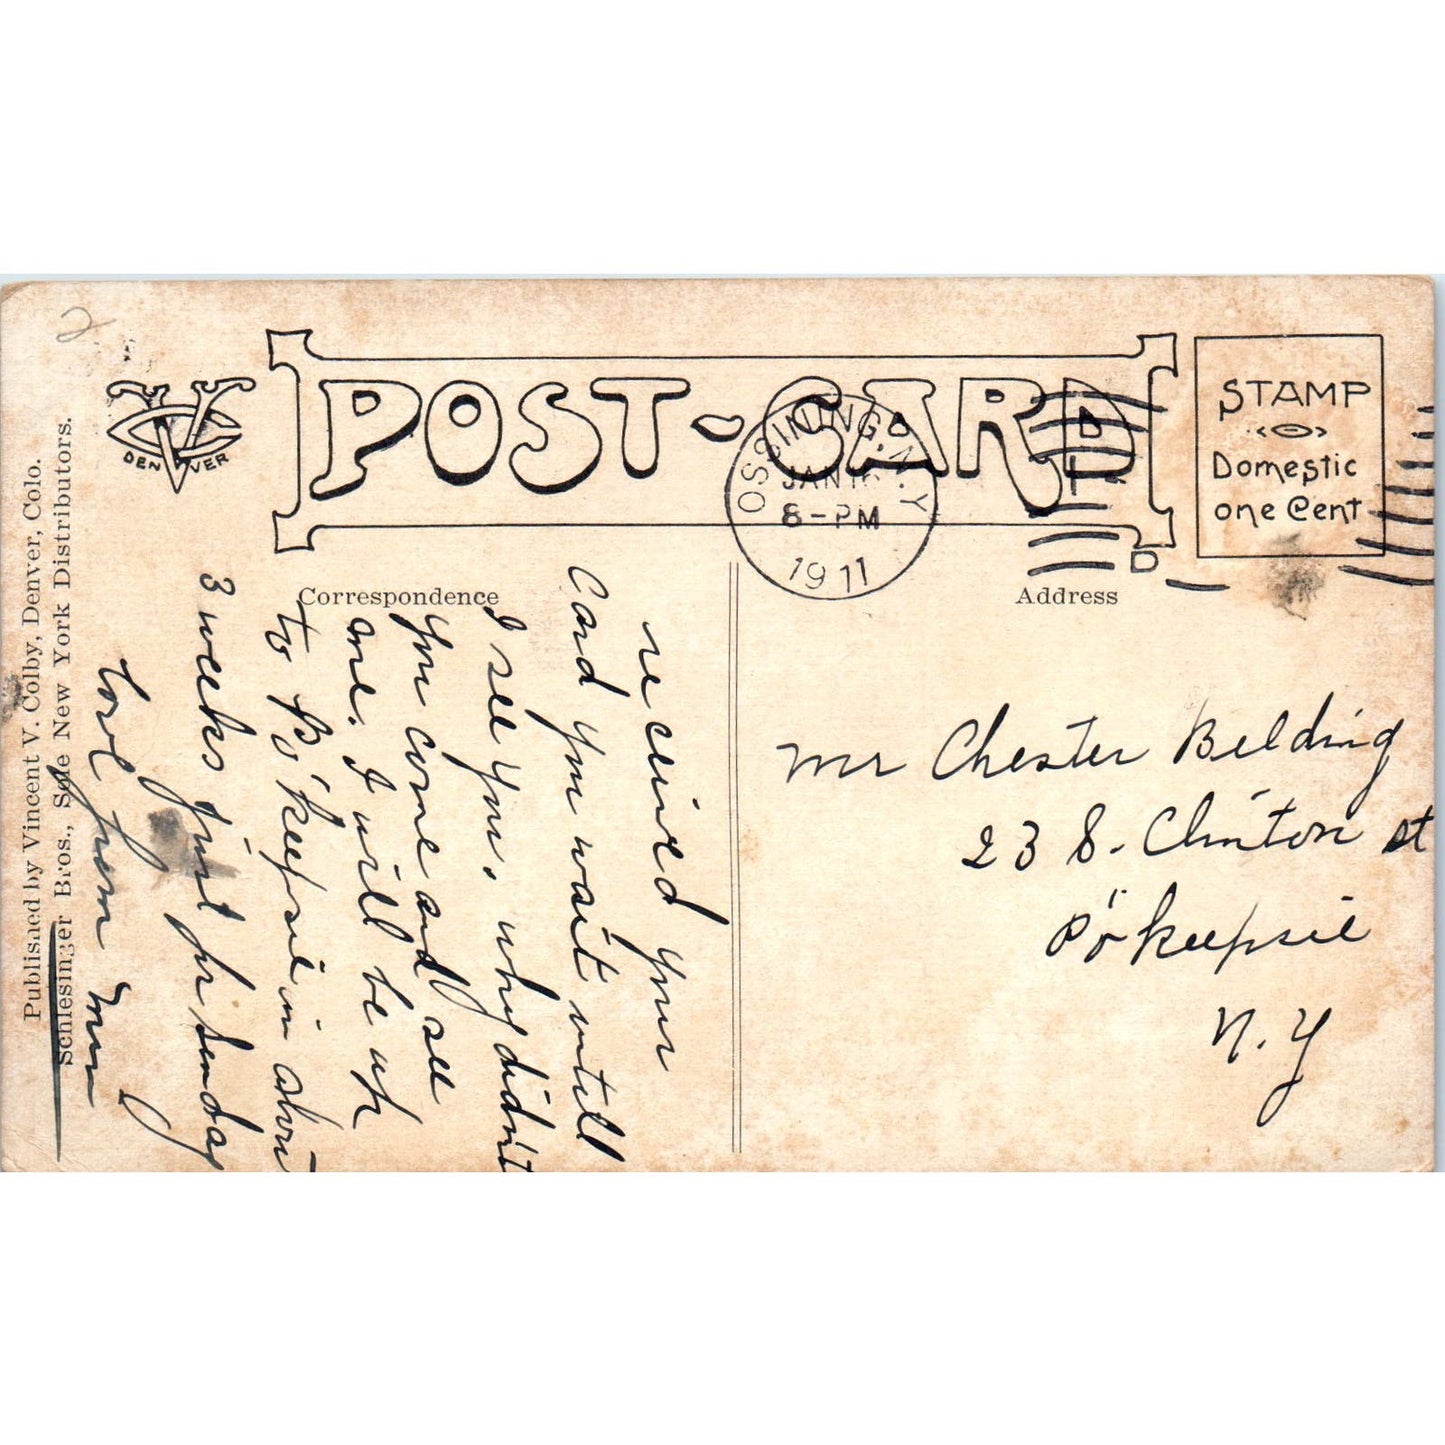 2
POST-CARD
VC
DENVER
STAMP
Domestic
one Cent
OSSINING, N.Y.
JAN
8-PM
1911
D
Correspondence
Address
recived your
Card you wait untill
I see you, why didn't
you come and see
me. I will be up
to Po'keepsie in about
3 weeks just for Sunday
Love from
Mr Chester Belding
23 S. Clinton st
Po'keepsie
N.Y
Published by Vincent V. Colby, Denver, Colo.
Schlesinger Bros., Sole New York Distributors.